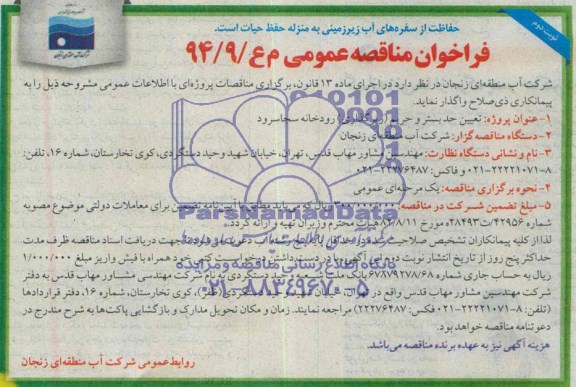 نوبت دوم
حفاظت از سفره‌های آب زیرزمینی به منزله حفظ حیات است.
فراخوان مناقصه عمومی م ع/۹۴/۹
شرکت آب منطقه‌ای زنجان در نظر دارد در اجرای ماده ۱۳ قانون، برگزاری مناقصات پروژه‌ای با اطلاعات عمومی مشروحه ذیل را به
پیمانکاری ذی‌صلاح واگذار نماید.
۱- عنوان پروژه: تعیین حد بستر و حریم (رپرگذاری) رودخانه سجاسرود
۲- دستگاه مناقصه گزار: شرکت آب منطقه‌ای زنجان
۳- نام و نشانی دستگاه نظارت: مهندسین مشاور مهاب قدس، تهران، خیابان شهید وحید دستگردی، کوی تخارستان، شماره ۱۶، تلفن:
۸-۲۲۲۲۱۰۷۱-۰۲۱ و فاکس: ۲۲۲۷۶۴۸۷-۰۲۱
۴- نحوه برگزاری مناقصه: یک مرحله‌ای عمومی
۵- مبلغ تضمین شرکت در مناقصه: ریال که می‌باید مطابق با آیین نامه تضمین برای معاملات دولتی موضوع مصوبه
شماره ۴۲۹۵۶/ت۲۸۴۹۳ه مورخ ۸۲/۸/۱۱ هیات محترم وزیران تهیه و ارائه گردد.
لذا از کلیه پیمانکاران تشخیص صلاحیت شده جهت دریافت اسناد مناقصه ظرف مدت
حداکثر پنج روز از تاریخ انتشار نوبت دوم این آگهی با در دست داشتن درخواست کتبی خود همراه با فیش واریز مبلغ ۱/۰۰۰/۰۰۰
ریال به حساب جاری شماره ۶۷۸۷۹۲۷۸/۶۸ بانک ملت شعبه وحید دستگردی به نام شرکت مهندسی مشاور مهاب قدس به دفتر
شرکت مهندسین مشاور مهاب قدس واقع در تهران، خیابان شهید وحید دستگردی (ظفر)، کوی تخارستان، شماره ۱۶، دفتر قراردادها
(تلفن: ۸-۲۲۲۲۱۰۷۱-۰۲۱ فکس: ۲۲۲۷۶۴۸۷) مراجعه نمایند. زمان و مکان تحویل مدارک و بازگشایی پاکت‌ها به شرح مندرج در
دعوتنامه مناقصه خواهد بود.
هزینه آگهی نیز به عهده برنده مناقصه می‌باشد.
روابط عمومی شرکت آب منطقه‌ای زنجان
ParsNamadData
پایگاه اطلاع رسانی مناقصه و مزایده
۰۲۱-۸۸۳۴۹۶۷۰-۵